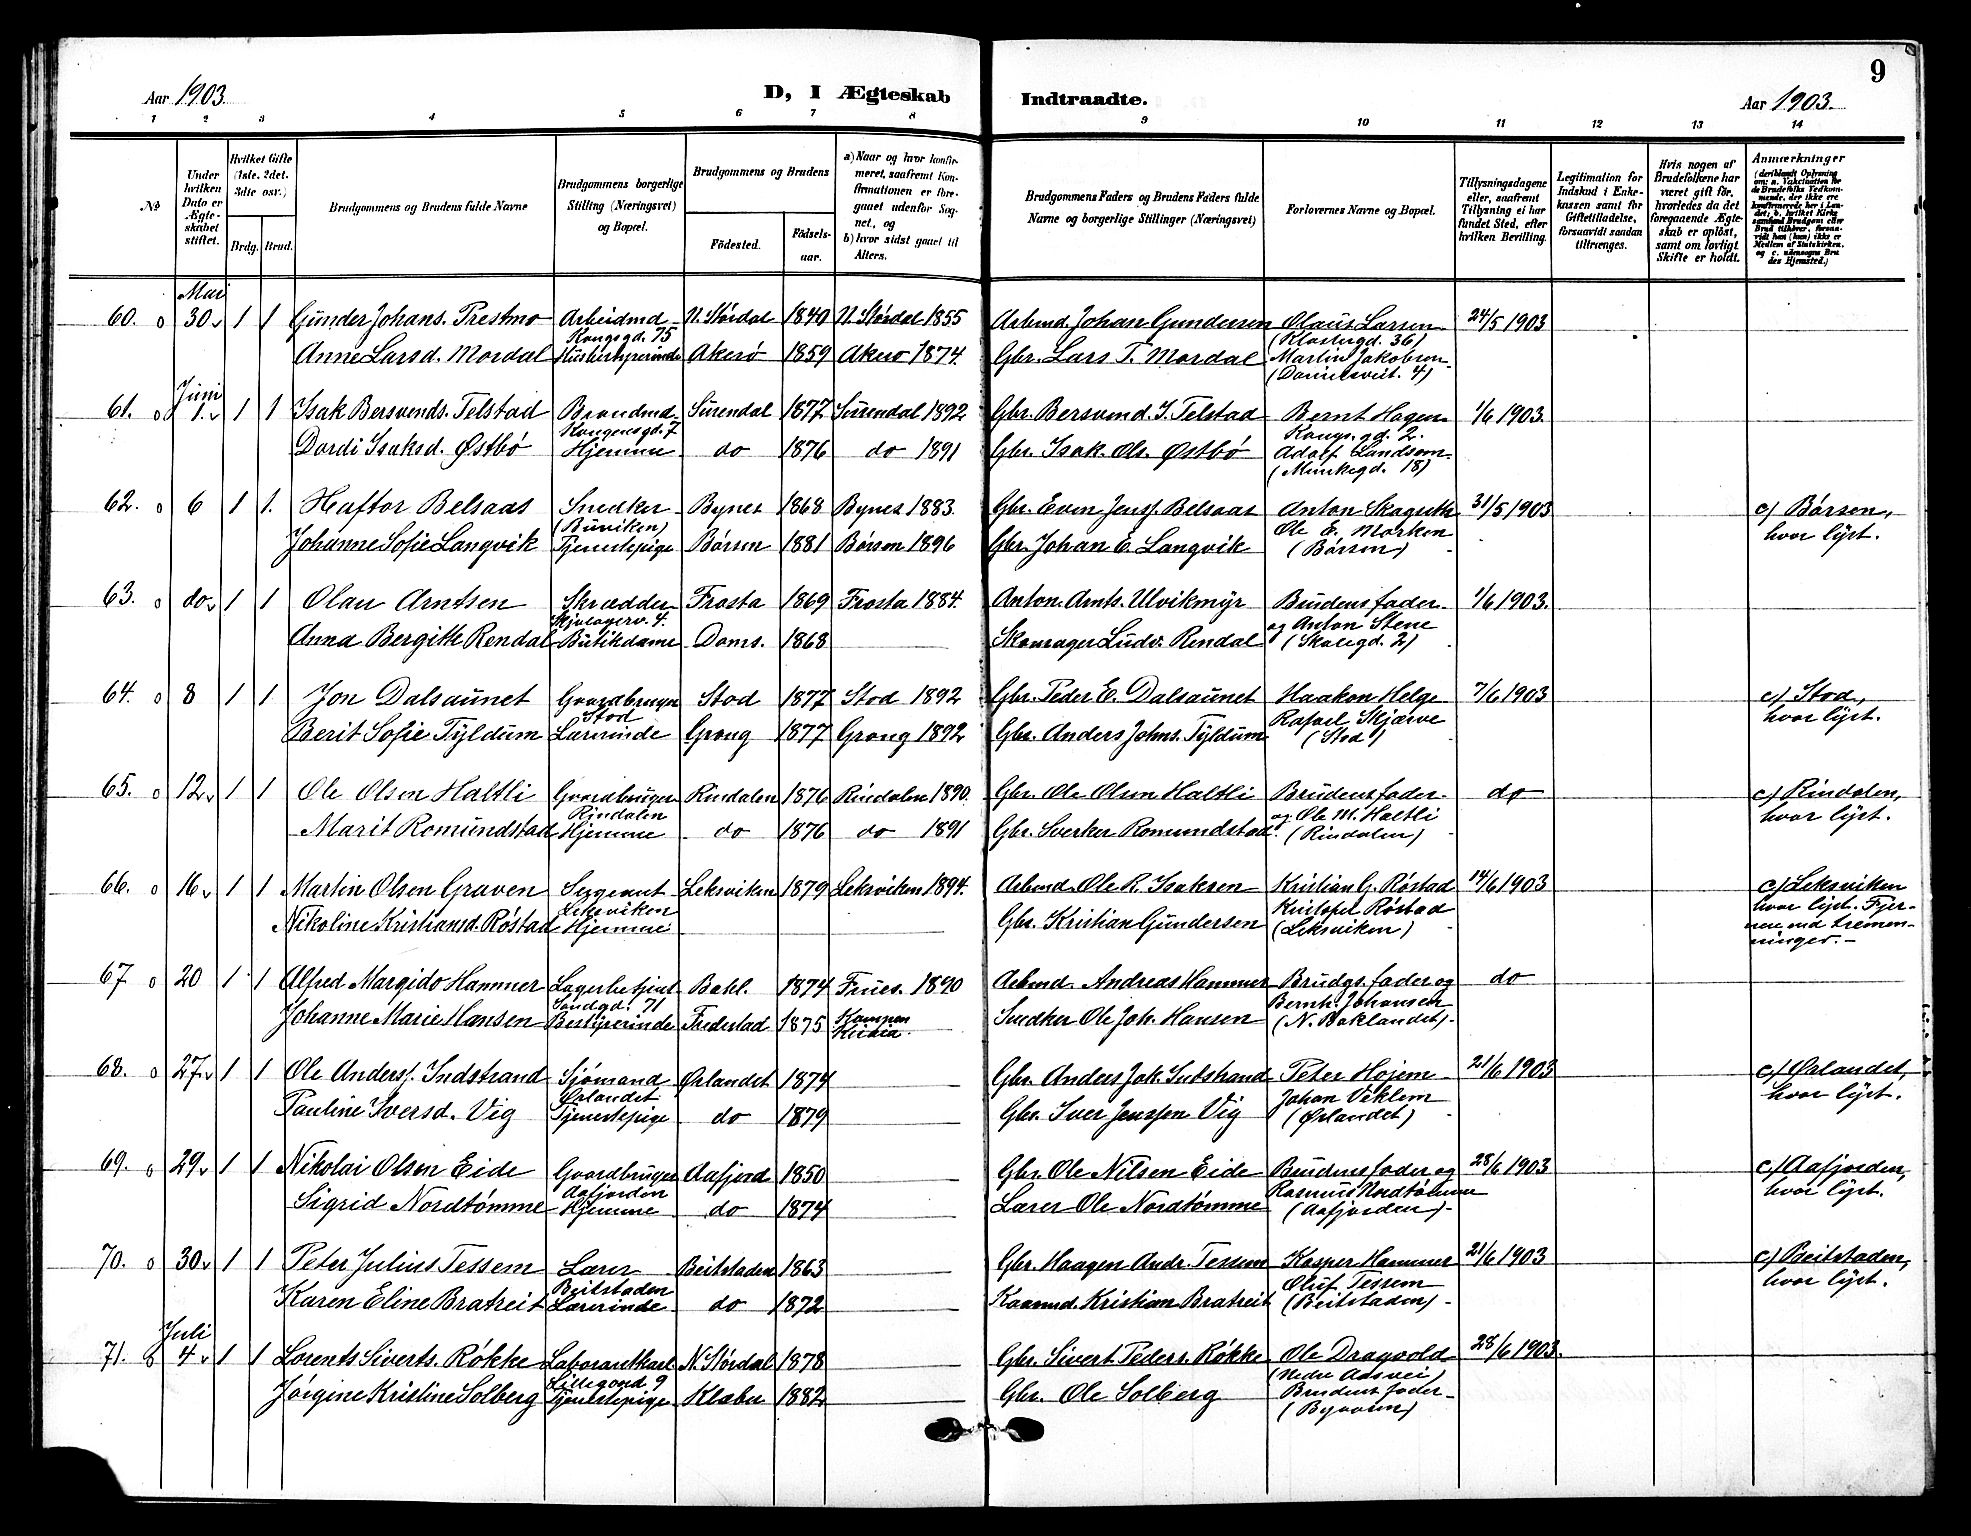 9
Aar 1903. D, I Ægteskab Indtraadte. Aar 1903.
1 2 3 4 5 6 7 8 9 10 11 12 13 14
No
Under hvilken Dato er Ægteskabet stiftet.
Hvilket Gifte (1ste, 2det, 3die osv.)
Brdg. Brud.
Brudgommens og Brudens fulde Navne
Brudgommens borgerlige Stilling (Næringsvei) og Bopæl.
Brudgommens og Brudens
Fødested. Fødselsaar.
a) Naar og hvor konfirmeret, saafremt Konfirmationen er foregaaet udenfor Sognet, og
b) hvor sidst gaaet til Alters.
Brudgommens Faders og Brudens Faders fulde Navne og borgerlige Stillinger (Næringsvei)
Forlovernes Navne og Bopæl.
Tillysningsdagene eller, saafremt Tillysning ei har fundet Sted, efter hvilken Bevilling.
Legitimation for Indskud i Enkekassen samt for Giftetilladelse, forsaavidt saadan tiltrænges.
Hvis nogen af Brudefolkene har været gift før, hvorledes da det foregaaende Ægteskab er opløst, samt om lovligt Skifte er holdt.
Anmærkninger (deriblandt Oplysning om: a. Vakcination for de Brudefolks Vedkommende, der ikke ere konfirmerede her i Landet; b. hvilket Kirkesamfund Brudgom eller Brud tilhører, forsaavidt han (hun) ikke er Medlem af Statskirken, og c. udensogns Brudes Hjemsted.)
Mai
60. o 30 v 1 1 Gunder Johans. Prestmo Arbeidmd. N. Størdal 1840 N. Størdal 1855 Arbmd. Johan Gundersen Olaus Larsen 24/5 1903
Kongsgd. 75 (Klostergd. 36)
Anne Larsd. Mordal Husbestyrerinde Akerø 1859 Akerø 1874. Gbr. Lars T. Mordal Martin Jakobsen
Juni
61. o 1. v 1 1 Isak Bersvends. Telstad Brandmd. Surendal 1877 Surendal 1892 Gbr. Bersvend. I. Telstad Bernt Hagen 1/6 1903.
Kongensgd. 7 Kongs. gd. 2.
Dordi Isaksd. Østbø Hjemme do 1876 do 1891 Gbr. Isak Ols. Østbø Adolf Landsem.
(Munkegd. 18)
62. o 6 1 1. Haftor Belsaas Snedker Bynes 1868 Bynes 1883. Gbr. Even Jensf. Belsaas Anton Skogseth 31/5 1903 c) Børsen,
(Buviken) Ole E. Morken hvor lyst.
Johanne Sofie Langvik Tjenestepige Børsen 1881 Børsen 1896 Gbr. Johan E. Langvik (Børsen)
63. o do v 1 1 Olau Arntsen Skrædder Frosta 1869 Frosta 1884. Anton Arnts. Ulvikmyr Brudens fader 1/6 1903.
og Anton Stene
Anna Bergitte Rendal Butikdame Doms. 1868 Skomager Ludv. Rendal (Skolegd. 2)
64. o 8 1 1 Jon Dalsaunet Gaardbruger Stod 1877 Stod 1892 Gbr. Peder E. Dalsaunet Haakon Helge 7/6 1903 c) Stod,
Stod Rafael Skjærve hvor lyst.
Berit Sofie Tyldum Lærerinde Grong 1877 Grong 1892 Gbr. Anders Johns. Tyldum (Stod)
65. o 12 v 1 1 Ole Olsen Haltli Gaardbruger Rindalen 1876 Rindalen 1890. Gbr. Ole Olsen Haltli Brudens fader do c) Rindalen,
Rindalen og Ole M. Haltli hvor lyst.
Marit Romundstad Hjemme do 1876 do 1891 Gbr. Sverker Romundstad. (Rindalen)
66. o 16 v 1 1 Martin Olsen Graven Sergeant Leksviken 1879 Leksviken 1894. Arbmd. Ole R. Isaksen Kristian G. Røstad 14/6 1903 c) Leksviken
Leksviken Kristofer Røstad hvor lyst. Fjer-
Nikoline Kristiansd. Røstad Hjemme Gbr. Kristian Gundersen (Leksviken) nere end tremen-
ninger.
67 o 20 1 1 Alfred Margido Hammer Lagerbetjent Bakl. 1874 Frues. 1890 Arbmd. Andreas Hammer Brudgs. fader og do
Sandgd. 71 Bernh. Johansen
Johanne Marie Hansen Bestyrerinde Fredestad 1875 Kampen Kr.ania. Snedker Ole Joh. Hansen (N. Baklandet)
68. o 27. v 1 1 Ole Andersf. Indstrand Sjømand Ørlandet 1874 Gbr. Anders Joh. Indstrand Peter Hojem 21/6 1903 c) Ørlandet,
Ørlandet Johan Viklem hvor lyst.
Pauline Iversd. Vig Tjenestepige do 1879 Gbr. Iver Jenssen Vig (Ørlandet)
69. o 29 v 1 1 Nikolai Olsen Eide Gaardbruger Aafjord 1850 Gbr. Ole Nilsen Eide Brudens fader og 28/6 1903 c) Aafjorden,
Aafjorden Rasmus Nordtømme hvor lyst.
Sigrid Nordtømme Hjemme do 1874 Lærer Ole Nordtømme (Aafjorden)
70. o 30 v 1 1 Peter Julius Tessem Lærer Beitstaden 1863 Gbr. Haagen Andr. Tessem Kasper Hammer 21/6 1903 c) Beitstaden,
Beitstaden Oluf Tessem hvor lyst.
Karen Eline Bratreit Lærerinde do 1872 Kaarmd. Kristian Bratreit (Beitstaden)
Juli
71. o 4 v 1 1 Lorents Siverts. Røkke Laborantkarl N. Størdal 1878 Gbr. Sivert Peders. Røkke Ole Dragvold 28/6 1903.
Lillegaard 9 (Nedre Aasvei)
Jørgine Kristine Solberg Tjenestepige Klæbu 1882 Gbr. Ole Solberg Brudens fader
(Byaasen)